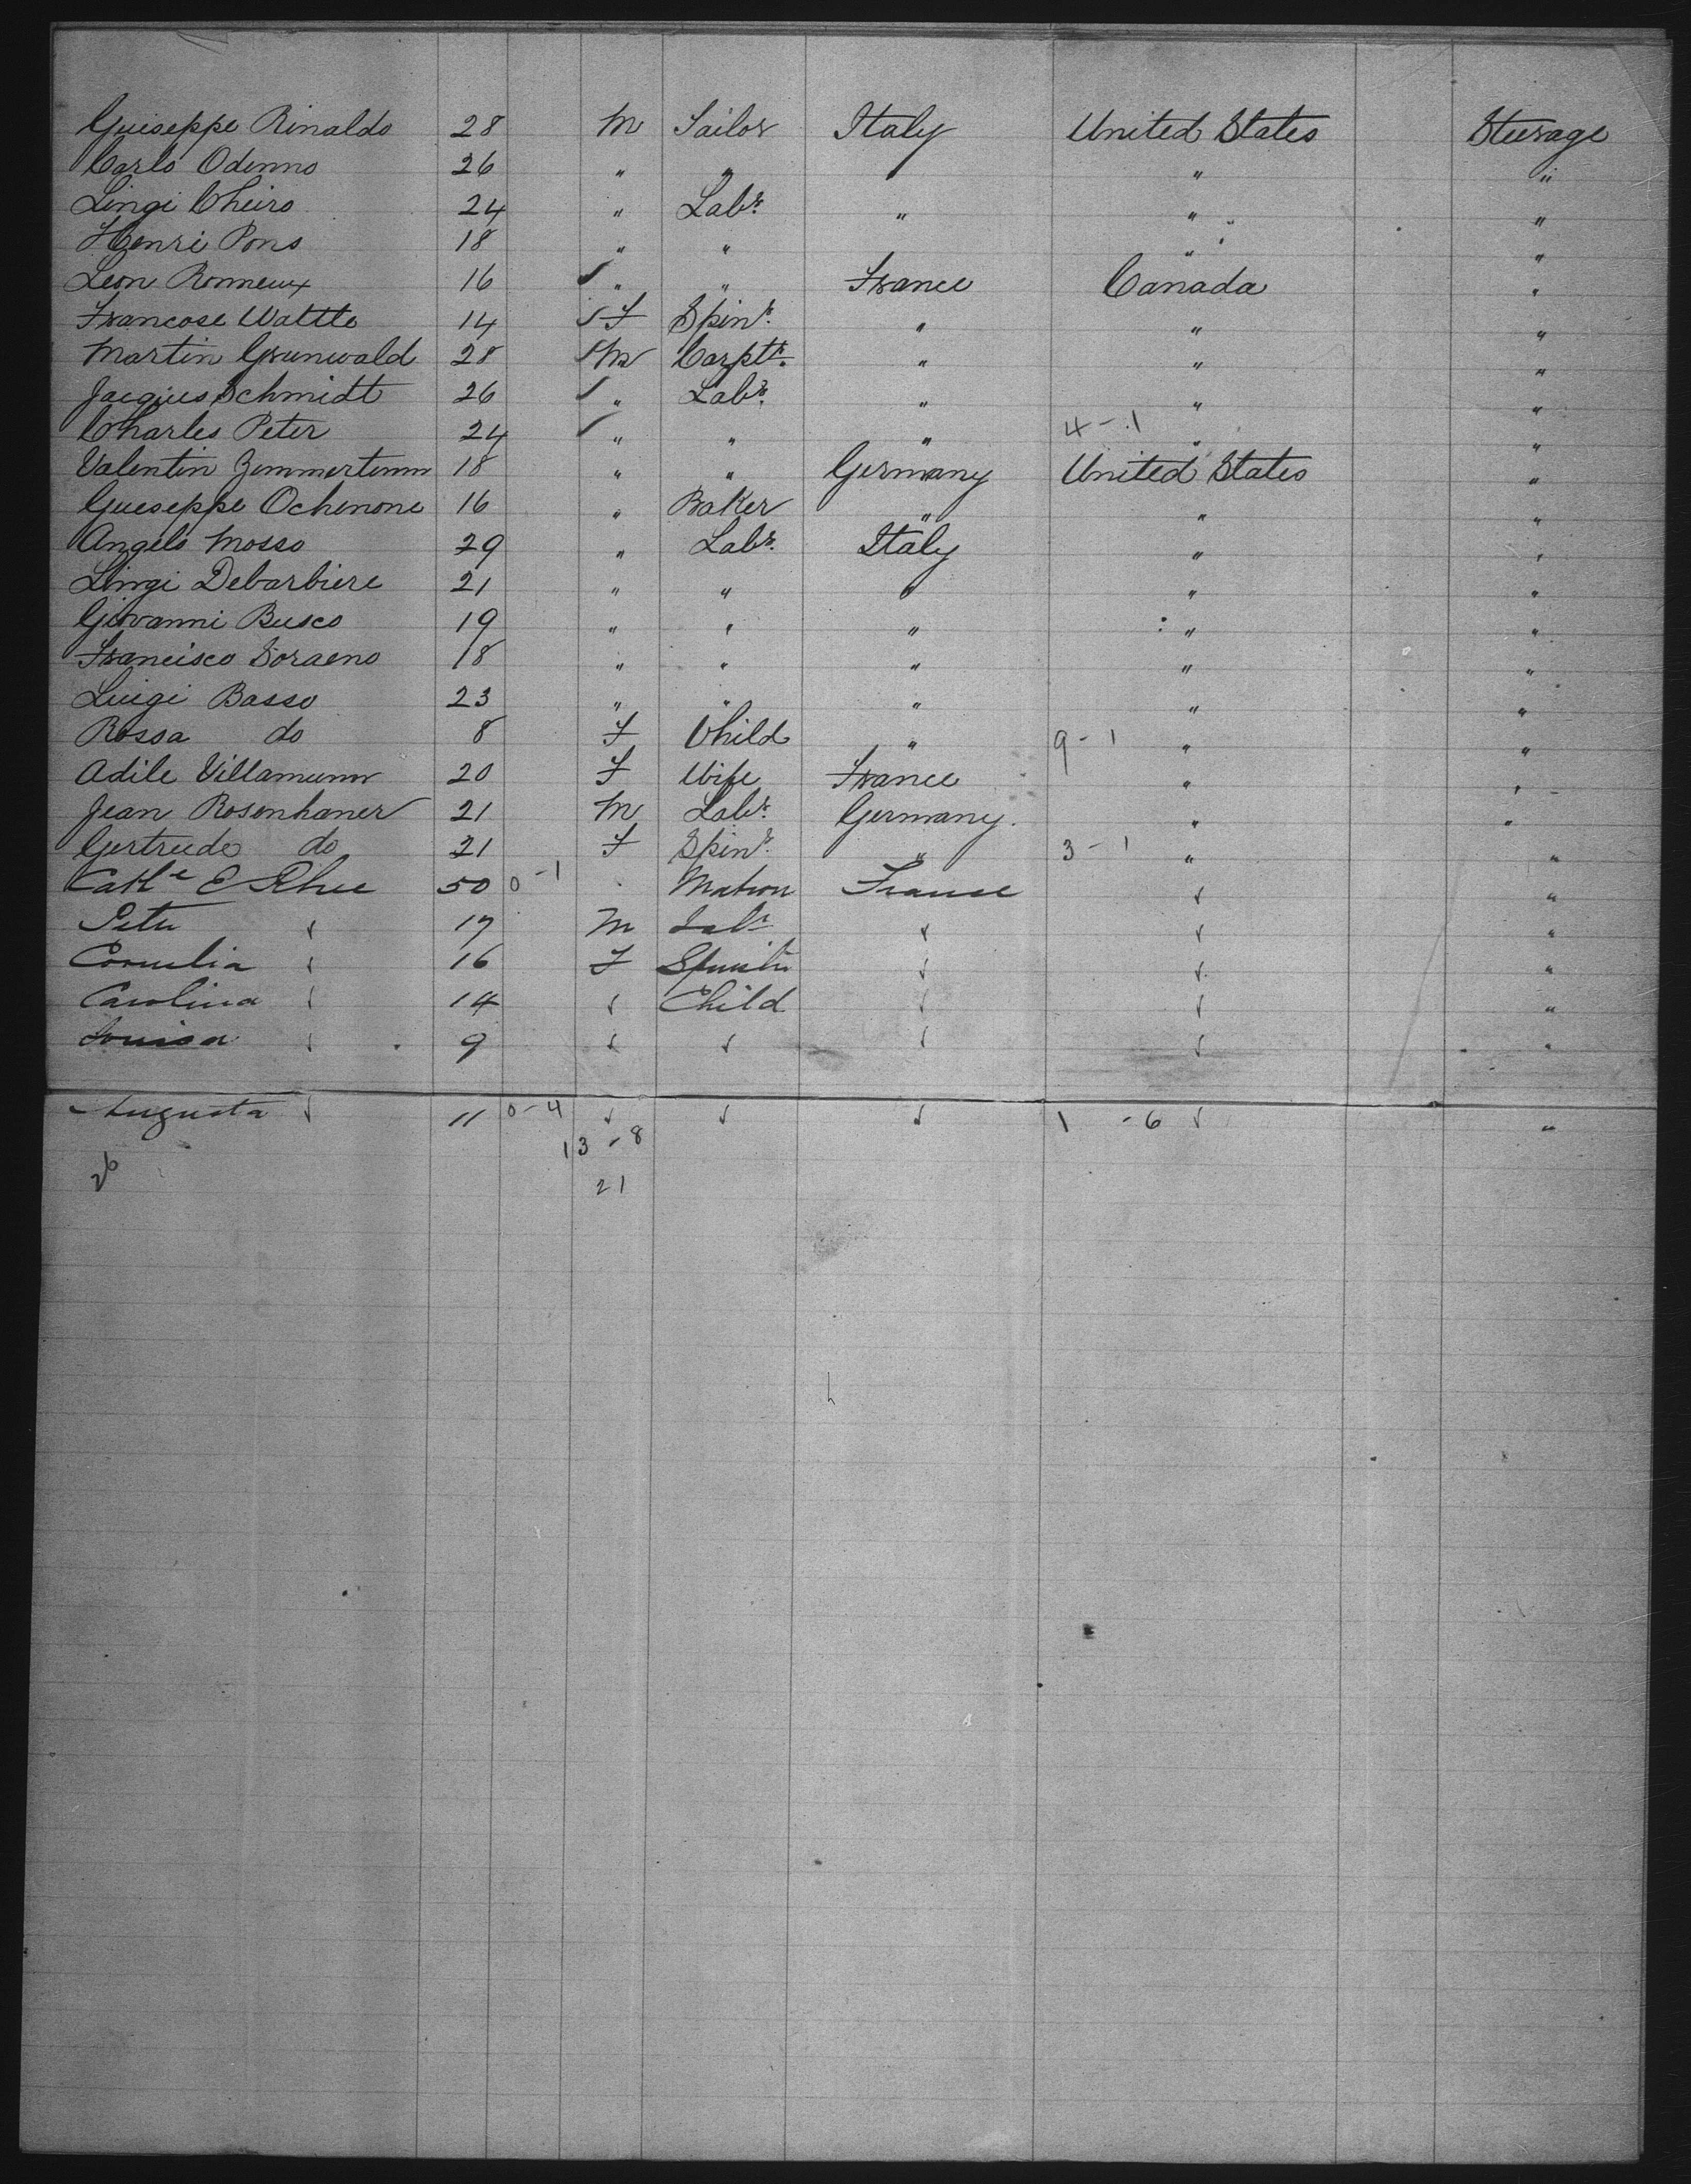 Guiseppe Rinaldo 28 M Sailor Italy United States Steerage
Carlo Odenno 26 " " " " "
Lingi Cheiro 24 " Labr. " " "
Henri Pons 18 " " " "
Leon Ronneux 16 ✓ " " France Canada "
Francose Wattte 14 ✓ F Spinr. " " "
Martin Grunwald 28 ✓ M Carptr. " " "
Jacques Schmidt 26 ✓ " Labr. " " "
Charles Peter 24 ✓ " " " 4 - 1 " "
Valentin 18 " " Germany United States "
Gueseppe Ochenone 16 " Baker " " "
Angelo Mosso 29 " Labr. Italy " "
Lingi Debarbiere 21 " " " " "
Giovanni Busco 19 " " " " "
Francisco Soraeno 18 " " " " "
Luigi Basso 23 " " " " "
Rossa do 8 F Child " 9 - 1 " "
Adile Villamunn 20 F Wife France " "
Jean Rosenhaner 21 M Labr. Germany. " "
Gertrude do 21 F Spinr. " 3 - 1 " "
Cathe E 50 0 - 1 Matron France " "
Peter " 17 M Labr " " "
Cornelia " 16 F Spinstr " " "
Carolina " 14 " Child " " "
Louisa " 9 " " " " "
Augusta " 11 0 - 4 " " " 1 - 6 " "
13 - 8
26 21